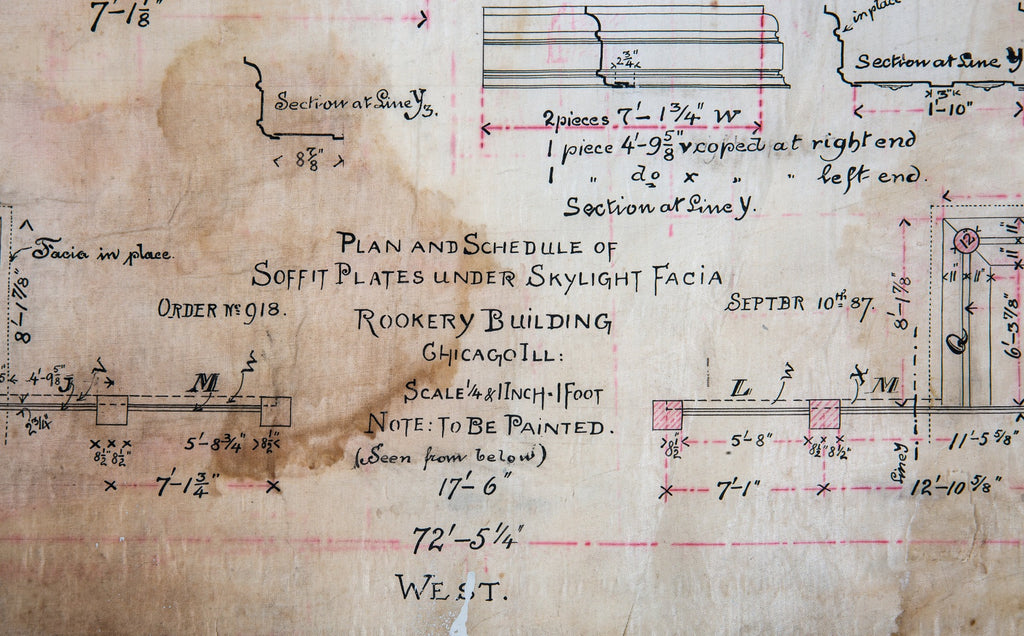 7'-1 1/8"
in place
2 3/4"
Section at Line Y
3"
1'-10"
Section at Line Y3.
8 7/8"
2 pieces 7'-1 3/4" W
1 piece 4'-9 5/8" v coped at right end
1 " do x " " left end.
Section at Line Y.
Facia in place.
8'-1 7/8"
PLAN AND SCHEDULE OF
SOFFIT PLATES UNDER SKYLIGHT FACIA
ORDER No 918.
SEPTBR 10TH 87.
ROOKERY BUILDING
CHICAGO ILL:
SCALE 1/4 & 1 INCH • 1 FOOT
NOTE: TO BE PAINTED.
(Seen from below)
17'-6"
72'-5 1/4"
WEST.
4'-9 5/8"
J
M
5'-8 3/4"
8 1/2"
8 1/2" 8 1/2"
7'-1 3/4"
L
M
8 1/2"
5'-8"
8 1/2" 8 1/2"
7'-1"
Line Y
11'-5 5/8"
12'-10 5/8"
8'-1 7/8"
12
11"
11"
11" 11"
6'-3 7/8"